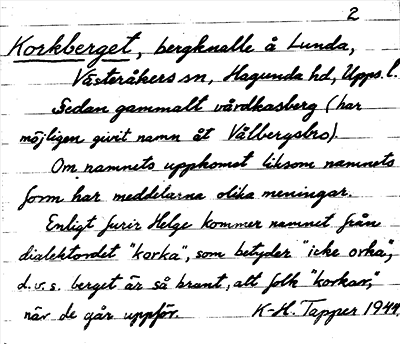 2
Korkberget, bergknalle å Lunda,
Västeråkers sn, Hagunda hd, Upps. l.
Sedan gammalt vårdkasberg (har
möjligen givit namn åt Vålbergsbro).
Om namnets uppkomst liksom namnets
form har meddelarna olika meningar.
Enligt furir Helge kommer namnet från
dialektordet "korka", som betyder "icke orka",
d.v.s. berget är så brant, att folk "korkar",
när de går uppför. K-H. Tapper 1944